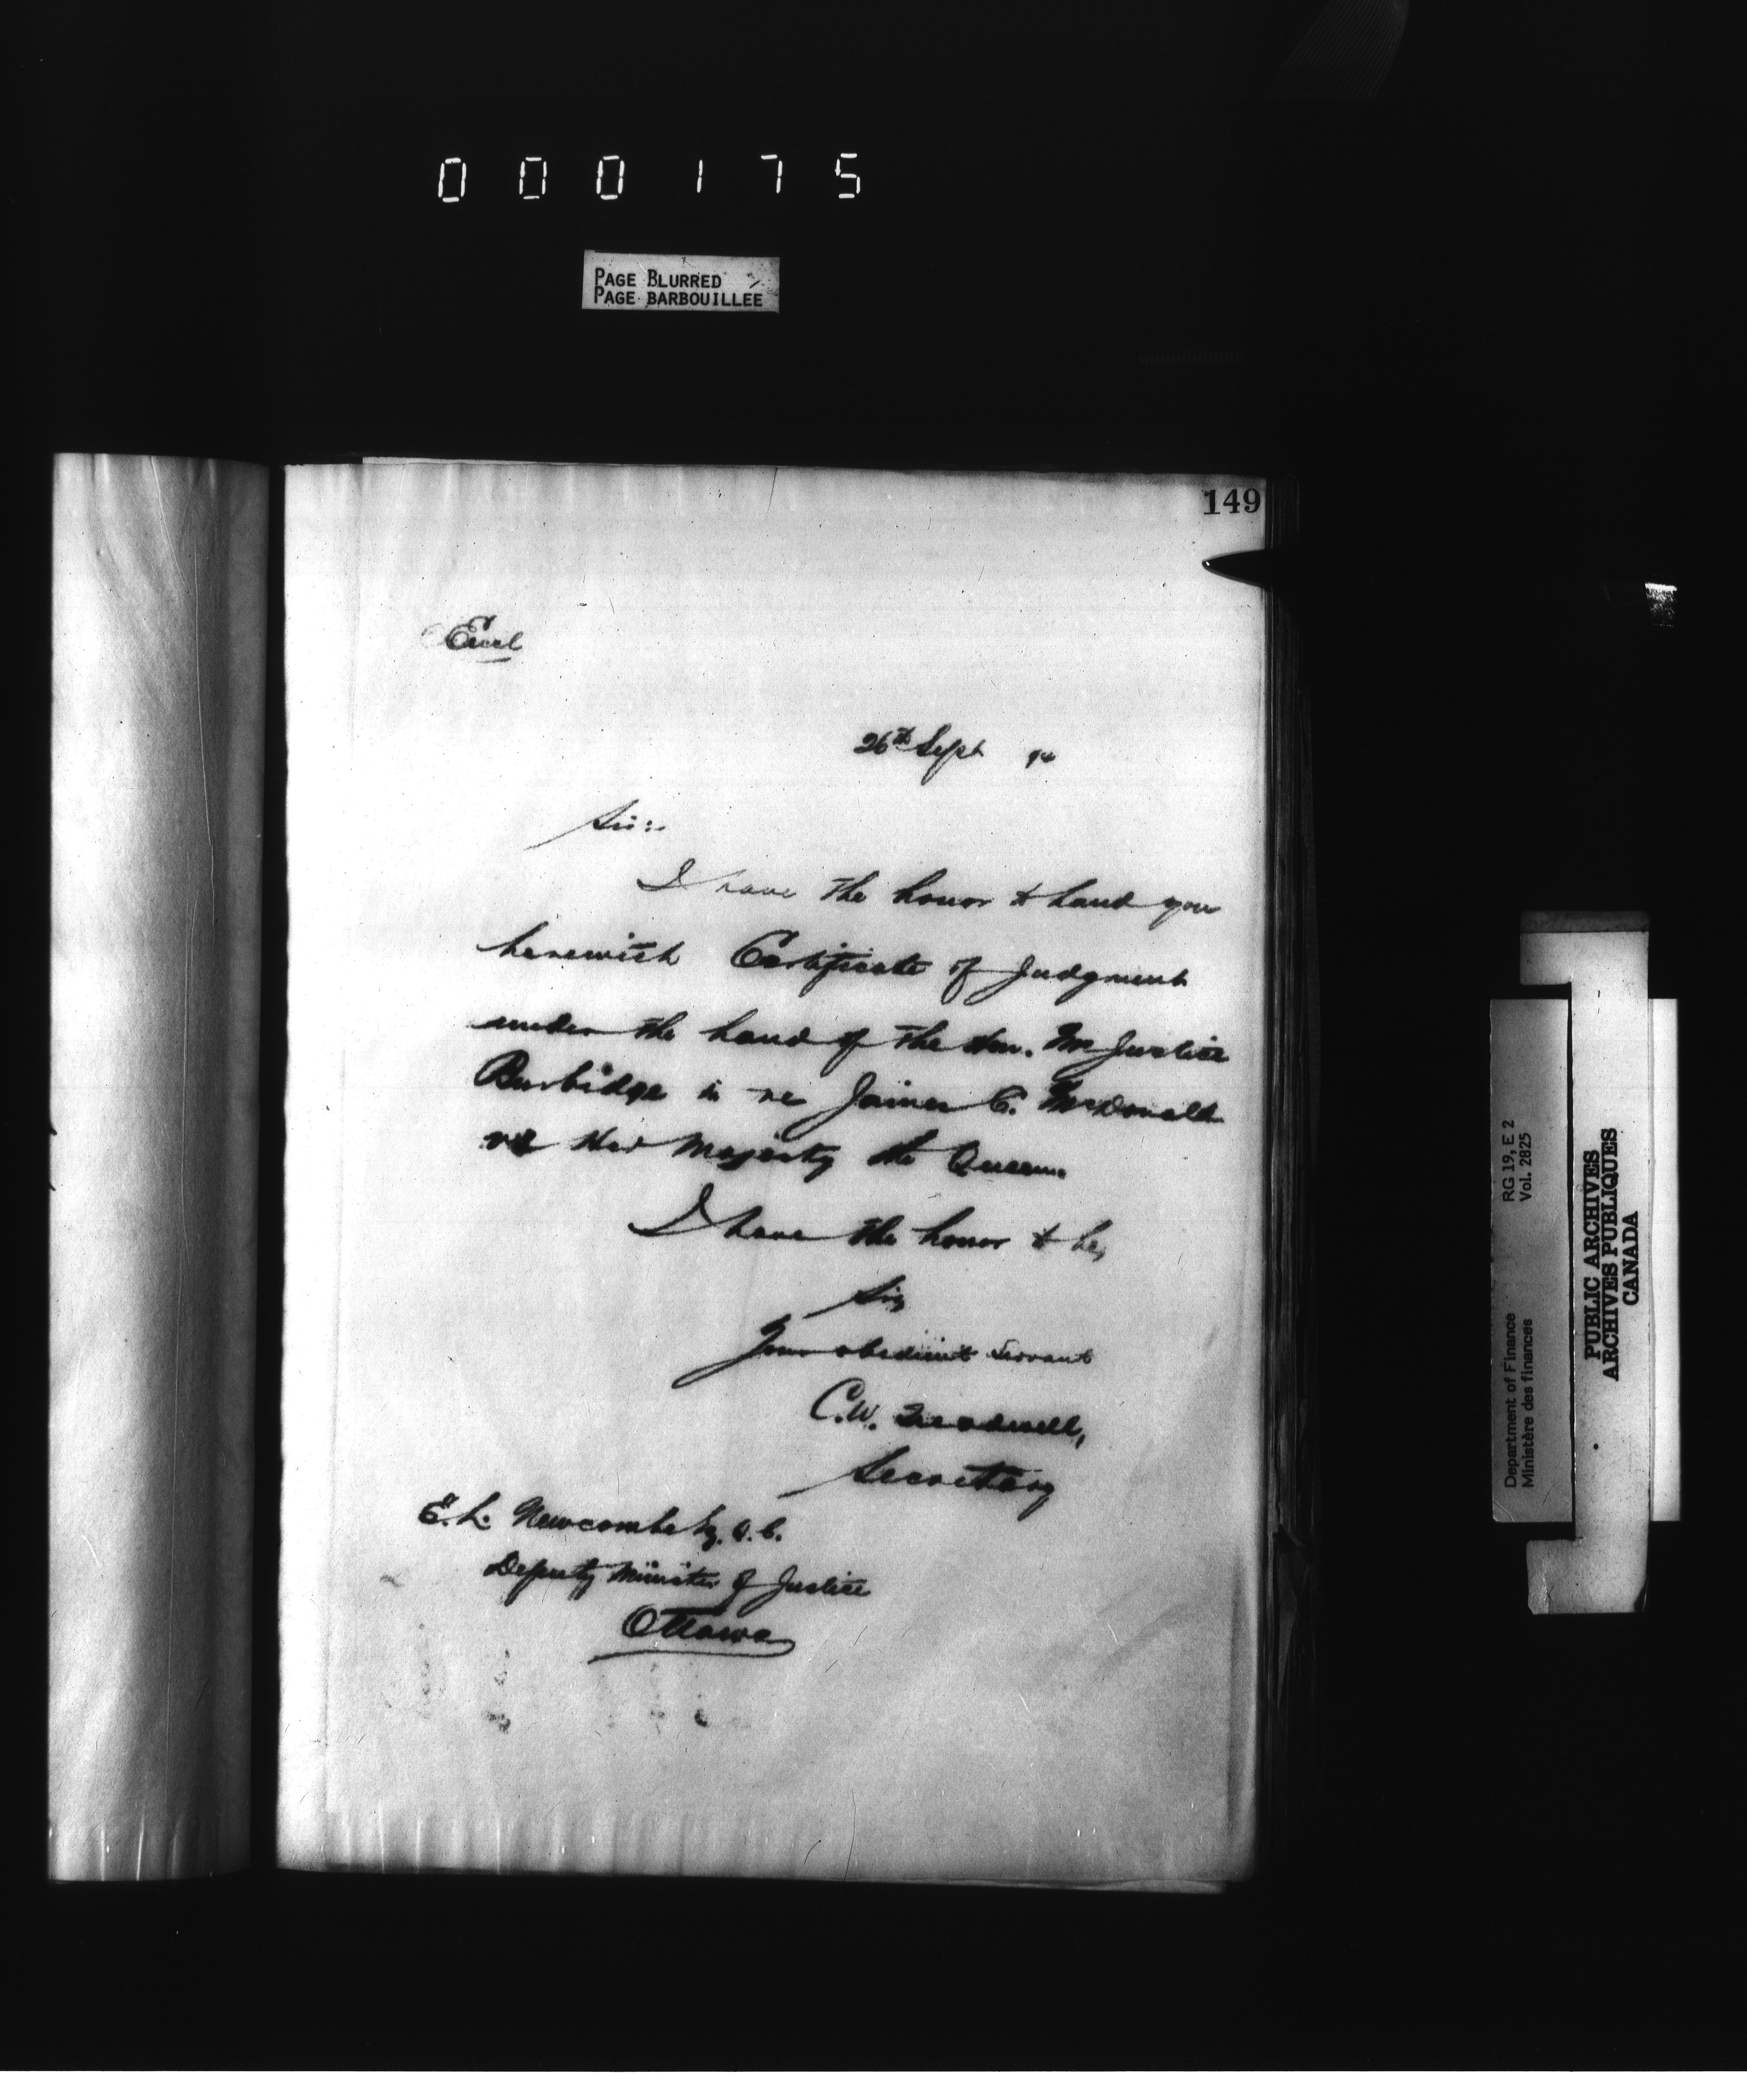 000175
PAGE BLURRED
PAGE BARBOUILLEE
149
Encl
26th Sept 94
Sir:-
I have the honor to hand you
herewith Certificate of Judgment
under the hand of the Hon. Mr Justice
Burbidge in re James C. McDonald
vs Her Majesty the Queen.
I have the honor to be,
Sir,
Your obedient Servant
C.W. Treadwell,
Secretary
E. L. Newcombe Esq. Q.C.
Deputy Minister of Justice
Ottawa
Department of Finance RG 19, E 2
Ministère des finances Vol. 2825
PUBLIC ARCHIVES
ARCHIVES PUBLIQUES
CANADA